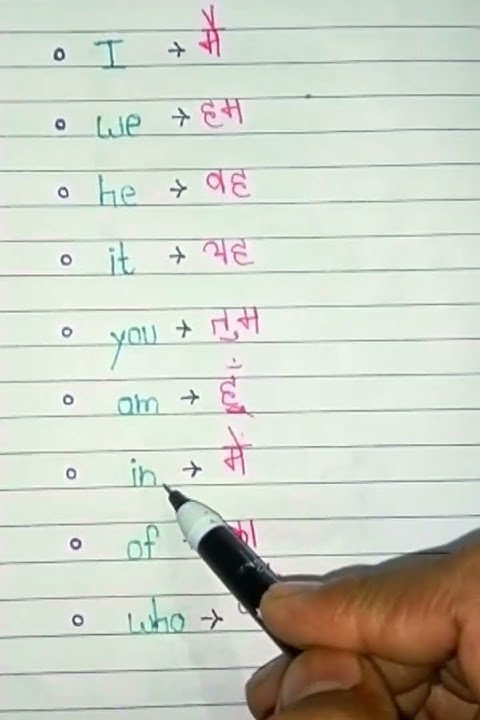 I → मैं
we → हम
he → वह
it → यह
you → तुम
am → हूँ
in → में
of का
who →